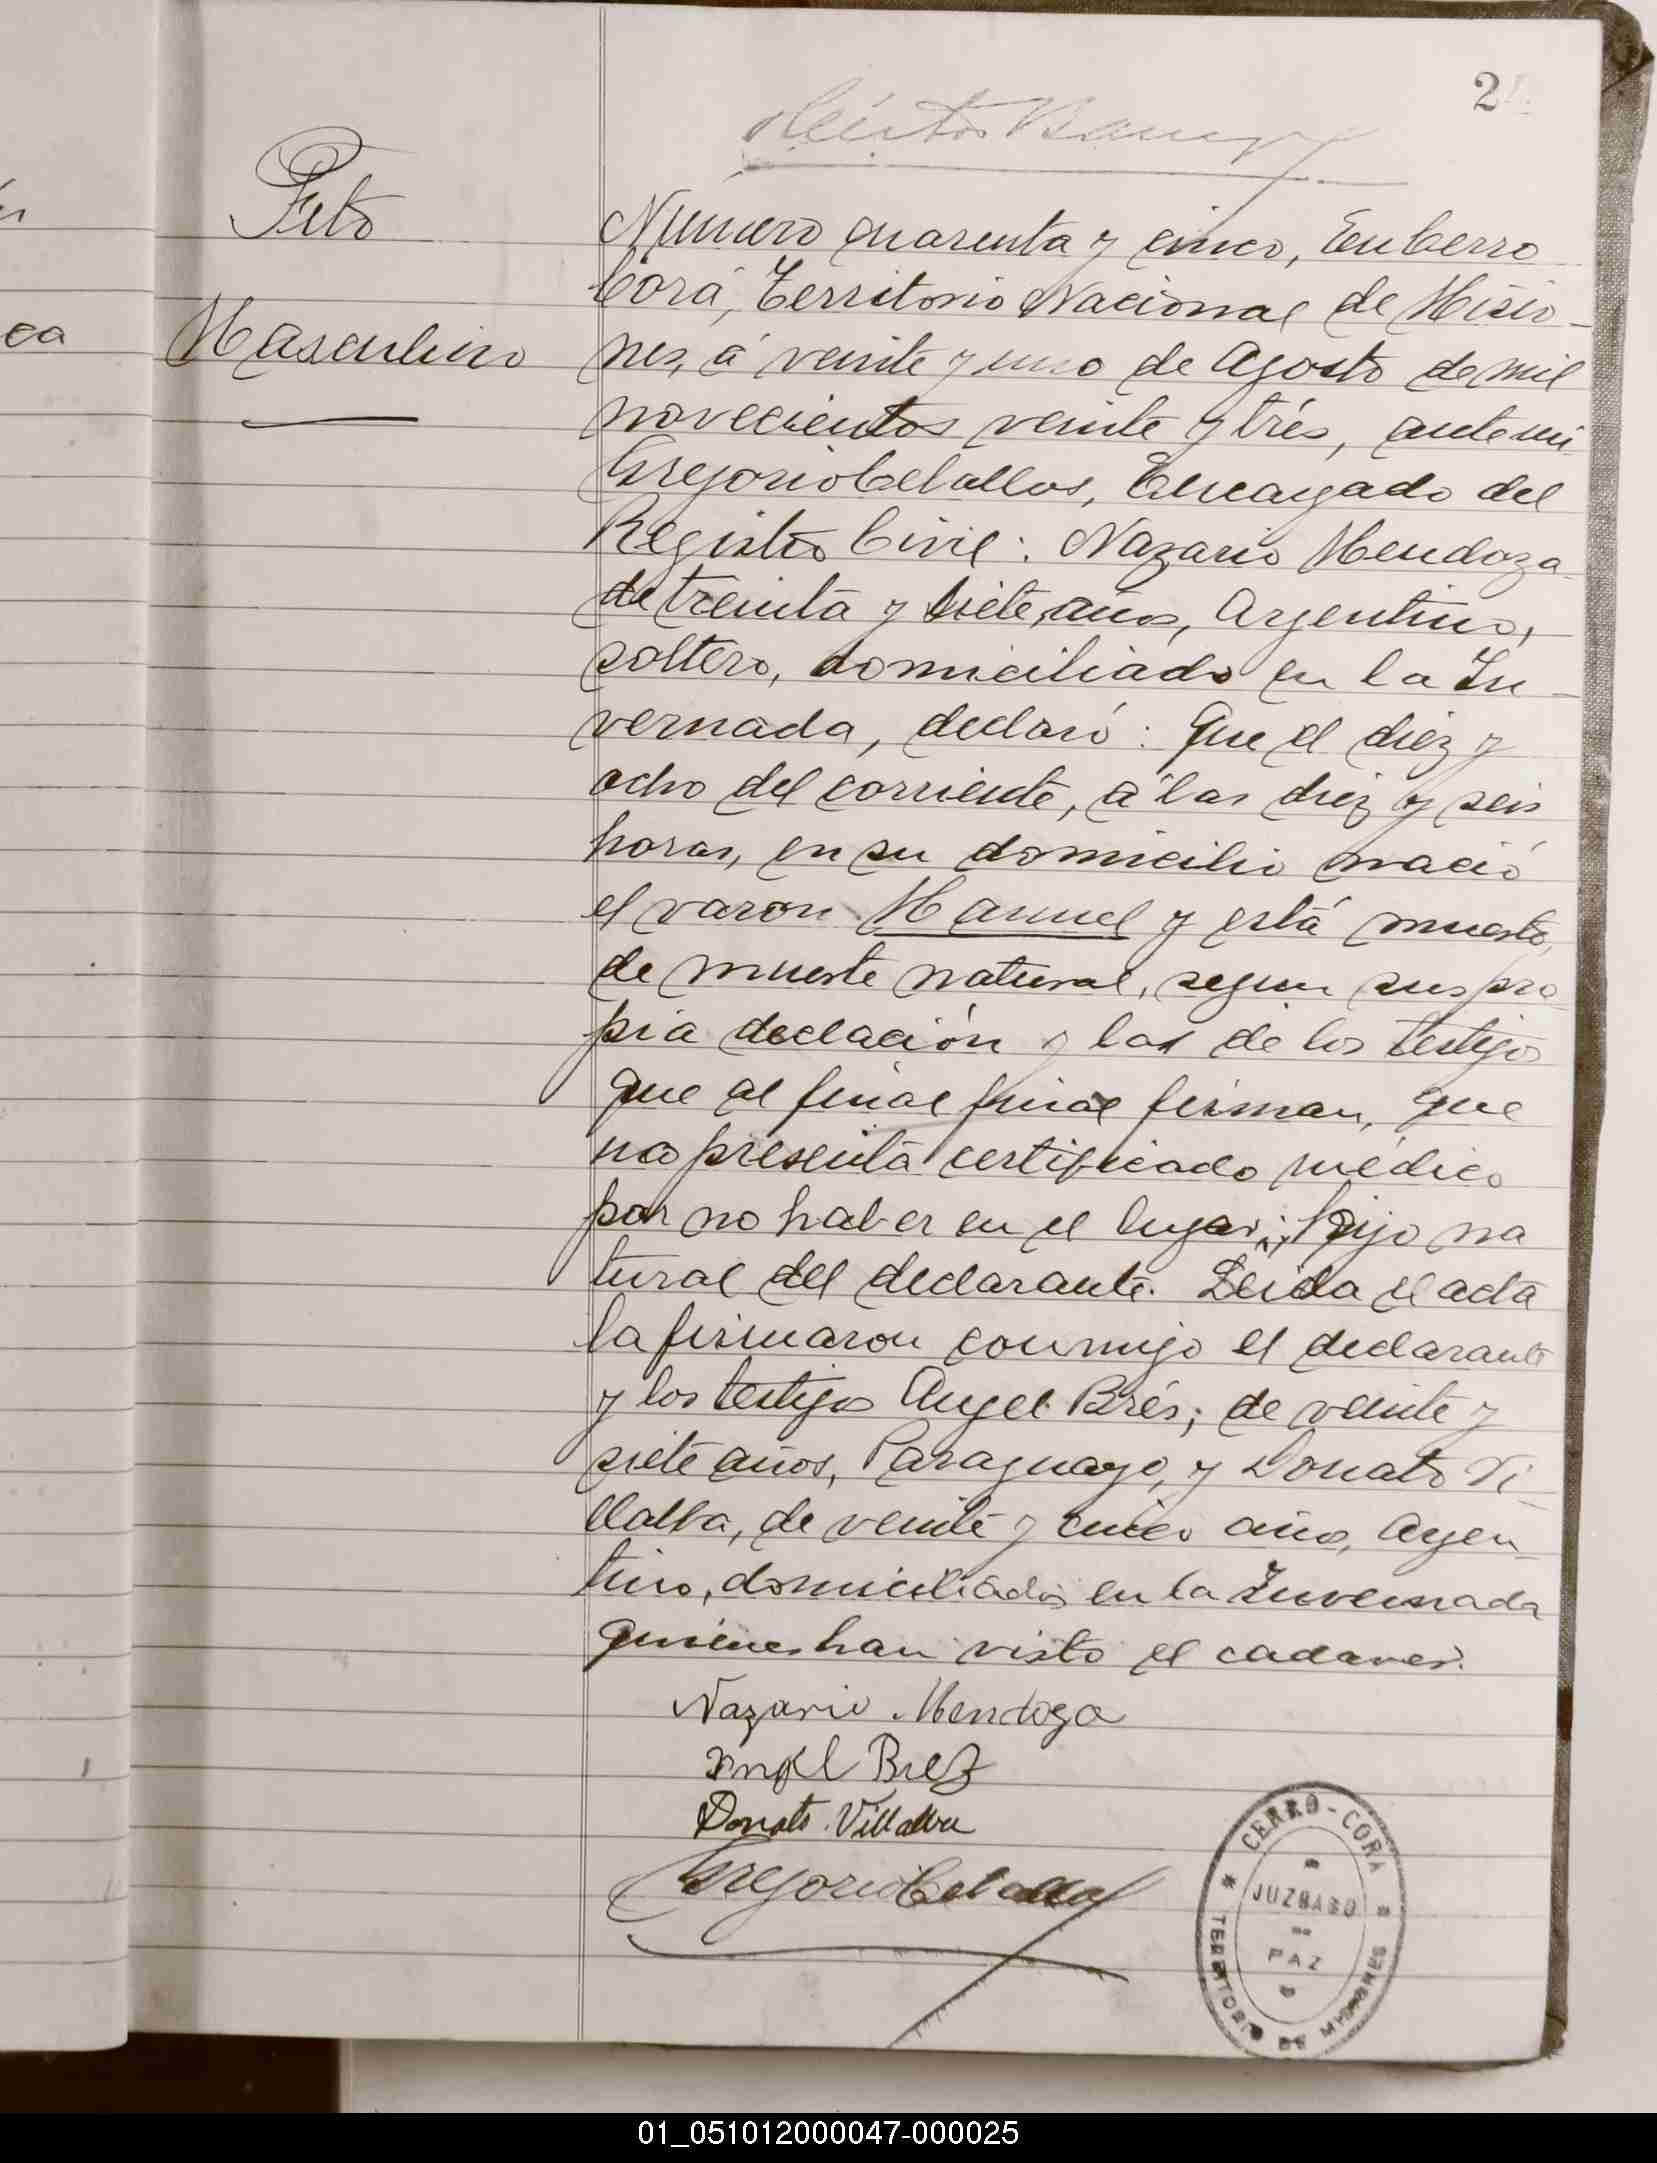 2
Feto
Masculino
Numero cuarenta y cinco, En Cerro
Corá, Territorio Nacional de Misio-
nes, á veinte y uno de Agosto de mil
novecientos veinte y trés, ante mi
Gregorio Celallos, Encargado del
Registro Civil: Nazario Mendoza
de treinta y siete, años, Argentino,
soltero, domiciliado en la In-
vernada, declaró: Que el diez y
ocho del corriente, á las diez y seis
horas, en su domicilio nació
el varon Manuel y está muerto,
de muerte natural, segun sus pro
pia declación y las de los testigos
que al final final firman, que
no presenta certificado médico
por no haber en el lugar; hijo na
tural del declarante. Leida el acta
la firmaron conmigo el declarante
y los testigos Angel Brés; de veinte y
siete años, Paraguayo, y Donato Vi-
llalba, de veinte y cinco años, Argen-
tino, domiciliados en la Invernada
quienes han visto el cadaver.
Nazario Mendoza
Angel Brez
Donato Villalba
Gregorio Celallos
CERRO-CORÁ
JUZGADO
PAZ
TERRITORIO DE MISIONES
ca
01_051012000047-000025